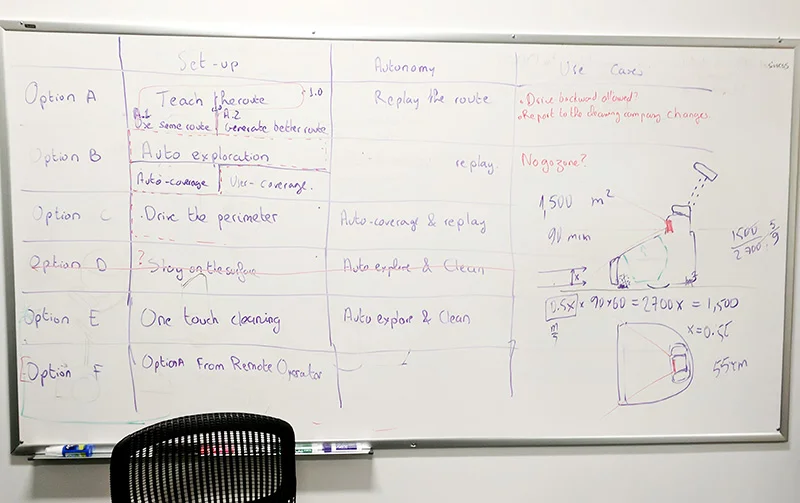 Set-up
Autonomy
Use Cases
Option A
Teach the route
1.0
A.1
Use same route
A.2
Generate better route
Replay the route
• Drive backward allowed?
• Report to the cleaning company changes.
Option B
Auto exploration
replay.
No go zone?
Auto-coverage
User-coverage.
1,500 m²
Option C
Drive the perimeter
Auto-coverage & replay
90 min
1500/2700 : 5/9
Option D
? Stay on the surface
Auto explore & Clean
x
0.5x × 90×60 = 2700x = 1,500
m/s
Option E
One touch cleaning
Auto explore & Clean
x=0.55
Option F
Option A From Remote Operator
55cm